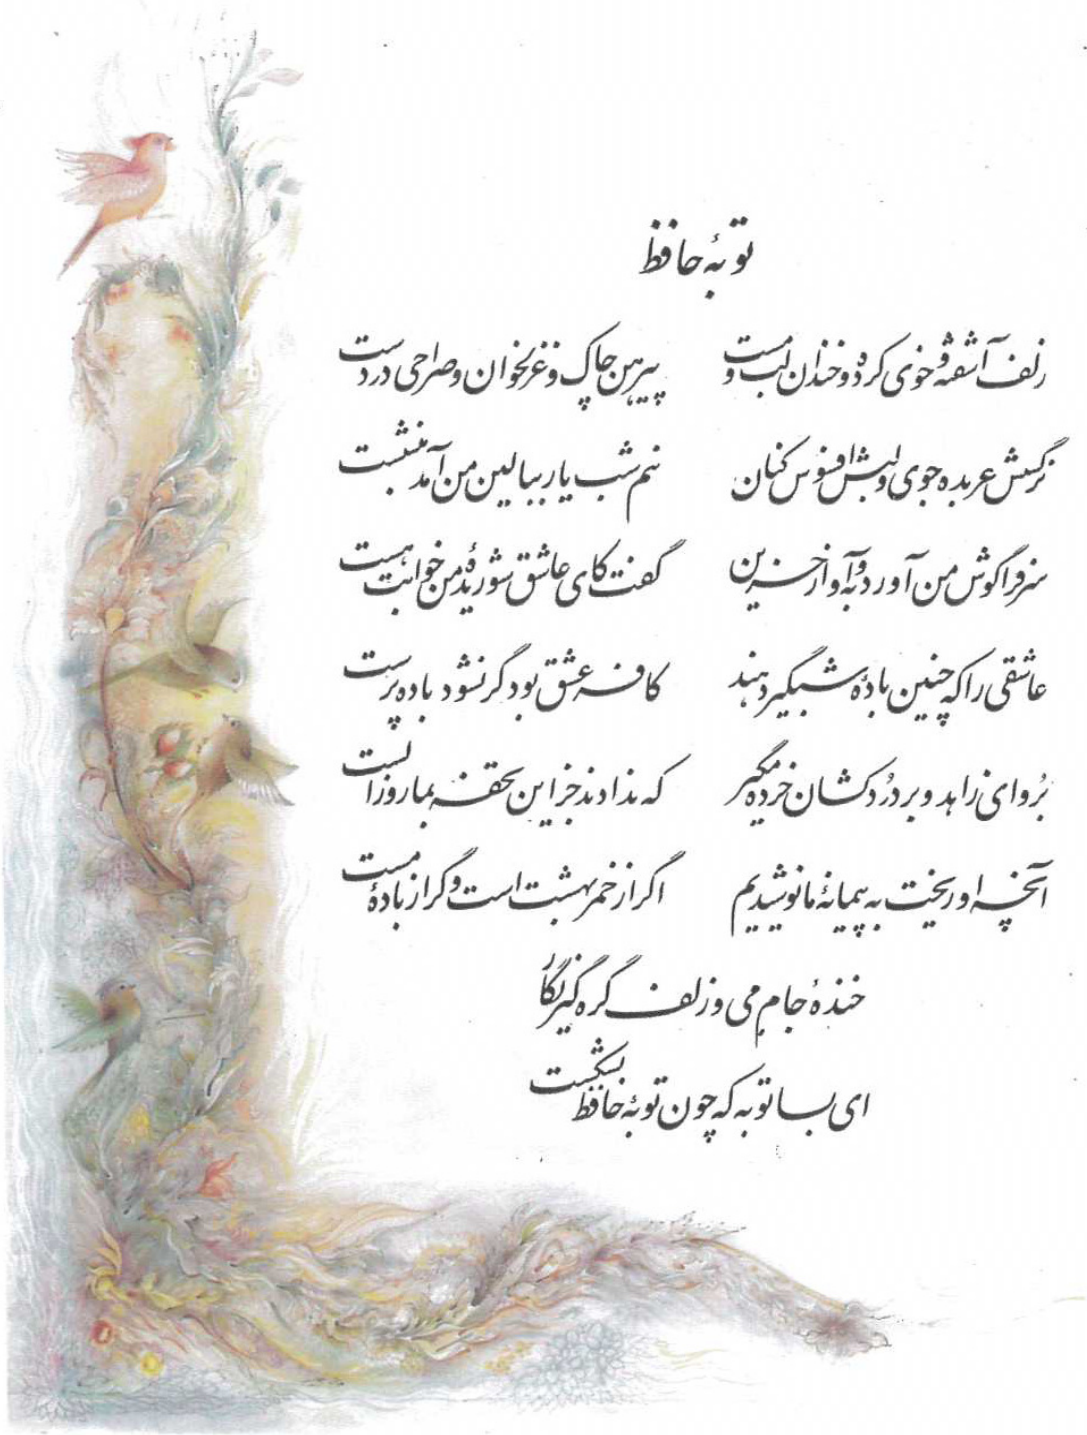 توبهٔ حافظ
زلف آشفته و خوی کرده و خندان لب و مست پیرهن چاک و غزلخوان و صراحی در دست
نرگسش عربده جوی و لبش افسوس کنان نیم شب یار ببالین من آمد بنشست
سر فرا گوش من آورد و به آواز حزین گفت کای عاشق شوریدهٔ من خوابت هست
عاشقی را که چنین بادهٔ شبگیر دهند کافر عشق بود گر نشود باده پرست
برو ای زاهد و بر دُرد کشان خرده مگیر که ندادند جز این تحفه بما روز الست
آنچه او ریخت به پیمانهٔ ما نوشیدیم اگر از خمر بهشت است و گر از بادهٔ مست
خندهٔ جام می و زلف گره گیر نگار
ای بسا توبه که چون توبهٔ حافظ بشکست